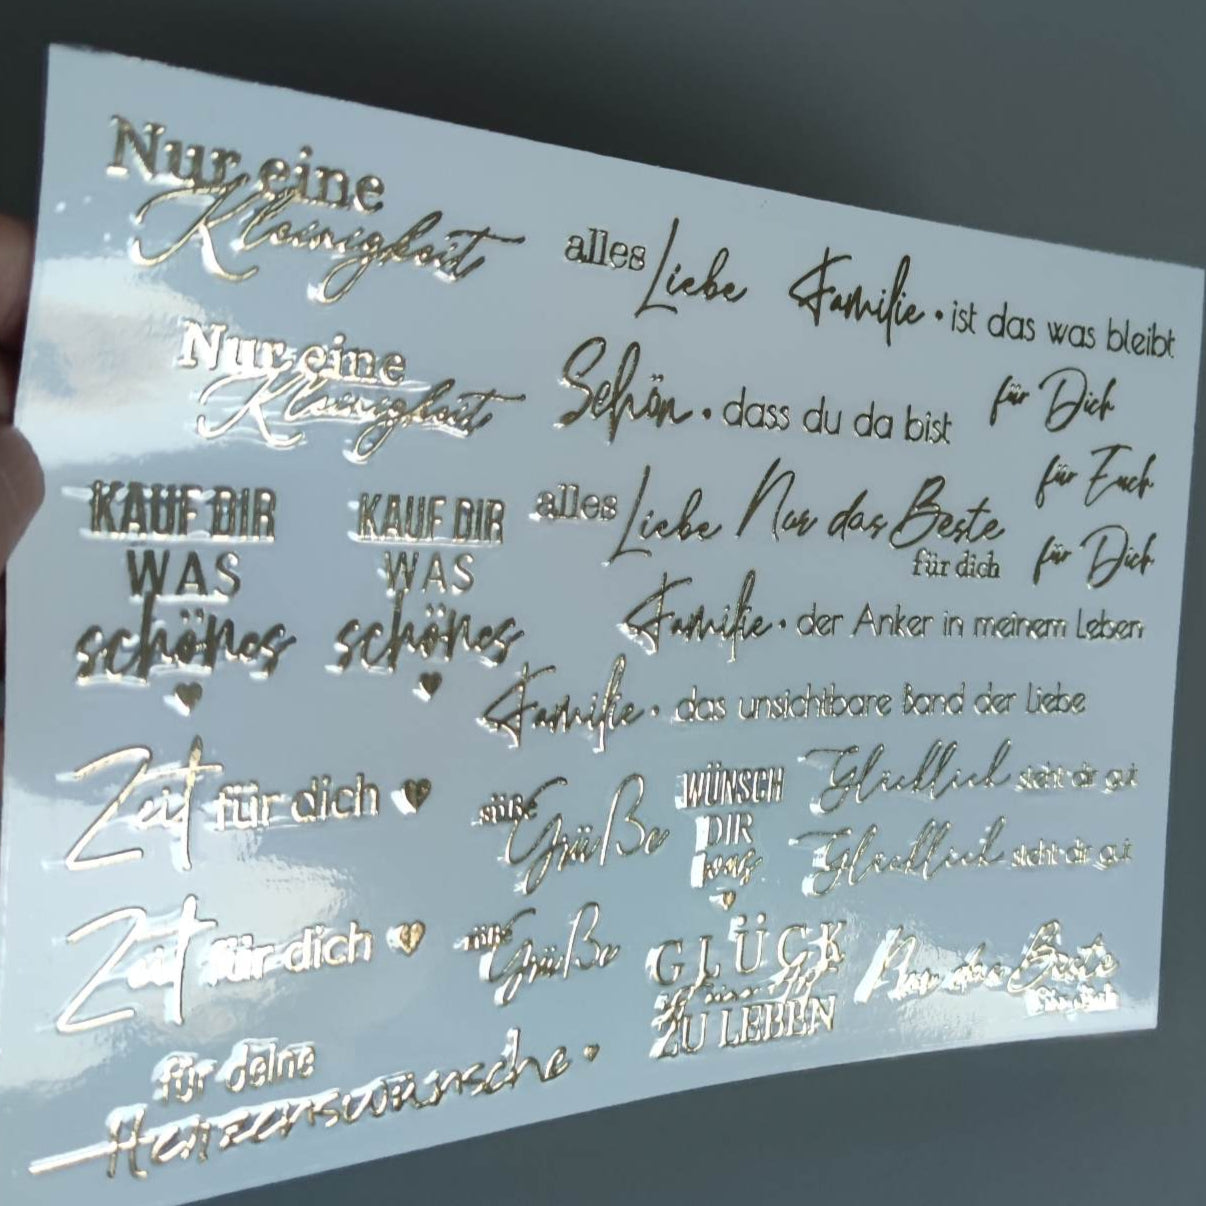 Nur eine
Kleinigkeit
alles Liebe
Familie • ist das was bleibt
Nur eine
Kleinigkeit
Schön • dass du da bist
für Dich
für Euch
KAUF DIR
WAS
schönes
KAUF DIR
WAS
schönes
alles Liebe
Nur das Beste
für dich
für Dich
Familie • der Anker in meinem Leben
Familie • das unsichtbare Band der Liebe
Zeit für dich
süße Grüße
WÜNSCH
DIR
was
Glücklich steht dir gut
Glücklich steht dir gut
Zeit für dich
süße Grüße
GLÜCK
ZU LEBEN
Nur das Beste
für dich
für deine
Herzenswünsche